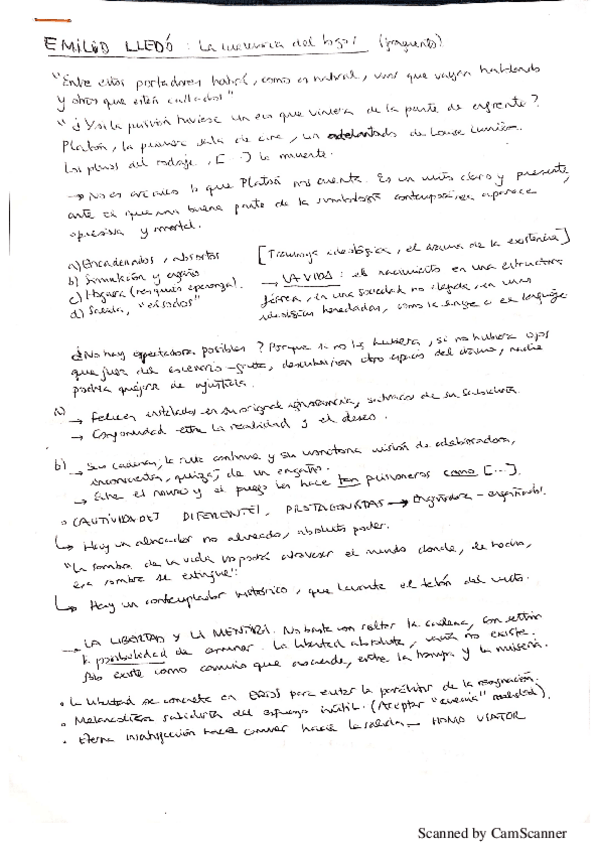 EMILIO LLEDÓ: La memoria del logos (fragmento)
"Entre estos portadores habrá, como es natural, unos que vayan hablando
y otros que estén callados"
"¿Y si la prisión tuviese un eco que viniera de la parte de enfrente?
Platón, la primera sala de cine, un adelantado de Louis Lumière.
Los planos del rodaje, [...] la muerte.
→ No es arcano lo que Platón nos cuenta. Es un mito claro y presente,
ante el que una buena parte de la simbología contemporánea aparece
opresiva y mortal.
a) Encadenados, absortos
b) Simulación y engaños
c) Hoguera (resquicio esperanza).
d) Salida, "ensados"
[Tramoya ideológica, el drama de la existencia]
→ LA VIDA: el nacimiento en una estructura
férrea, en una sociedad no elegida, en unas
ideologías heredadas, como la sangre o el lenguaje
¿No hay espectadores posibles? Porque si no los hubiera, si no hubiera ojos
que fuera del escenario-gruta, descubrieran otro espacio del drama, nadie
podría quejarse de injusticia.
a) → Felices instalados en su original ignorancia, de su sabiduría
→ Conformidad entre la realidad y el deseo.
b) → Sin cadenas, la ruta continua y su monótona misión de colaboradores,
inconscientes, quizá, de un engaño.
→ Entre el muro y el fuego los hace tan prisioneros como [...].
• CAUTIVIDADES DIFERENTES, PROTAGONISTAS → Engañadores - engañados.
↳ Hay un alineador no alineado, absoluto poder.
"La sombra de la vida no podrá atravesar el mundo donde, de hecho,
esa sombra se extingue".
↳ Hay un contemplador histórico, que levanta el telón del mito.
→ LA LIBERTAD Y LA MENTIRA. No basta con soltar la cadena, con sentir
la posibilidad de caminar. La libertad absoluta, vacía no existe.
Sólo existe como camino que asciende, entre la trampa y la miseria.
• La libertad se concreta en EROS para evitar la parálisis de la resignación.
• Melancólica sabiduría del esfuerzo inútil. (Aceptar "nuestra" realidad).
• Eterna insatisfacción hace caminar hacia la salida → HOMO VIATOR
Scanned by CamScanner